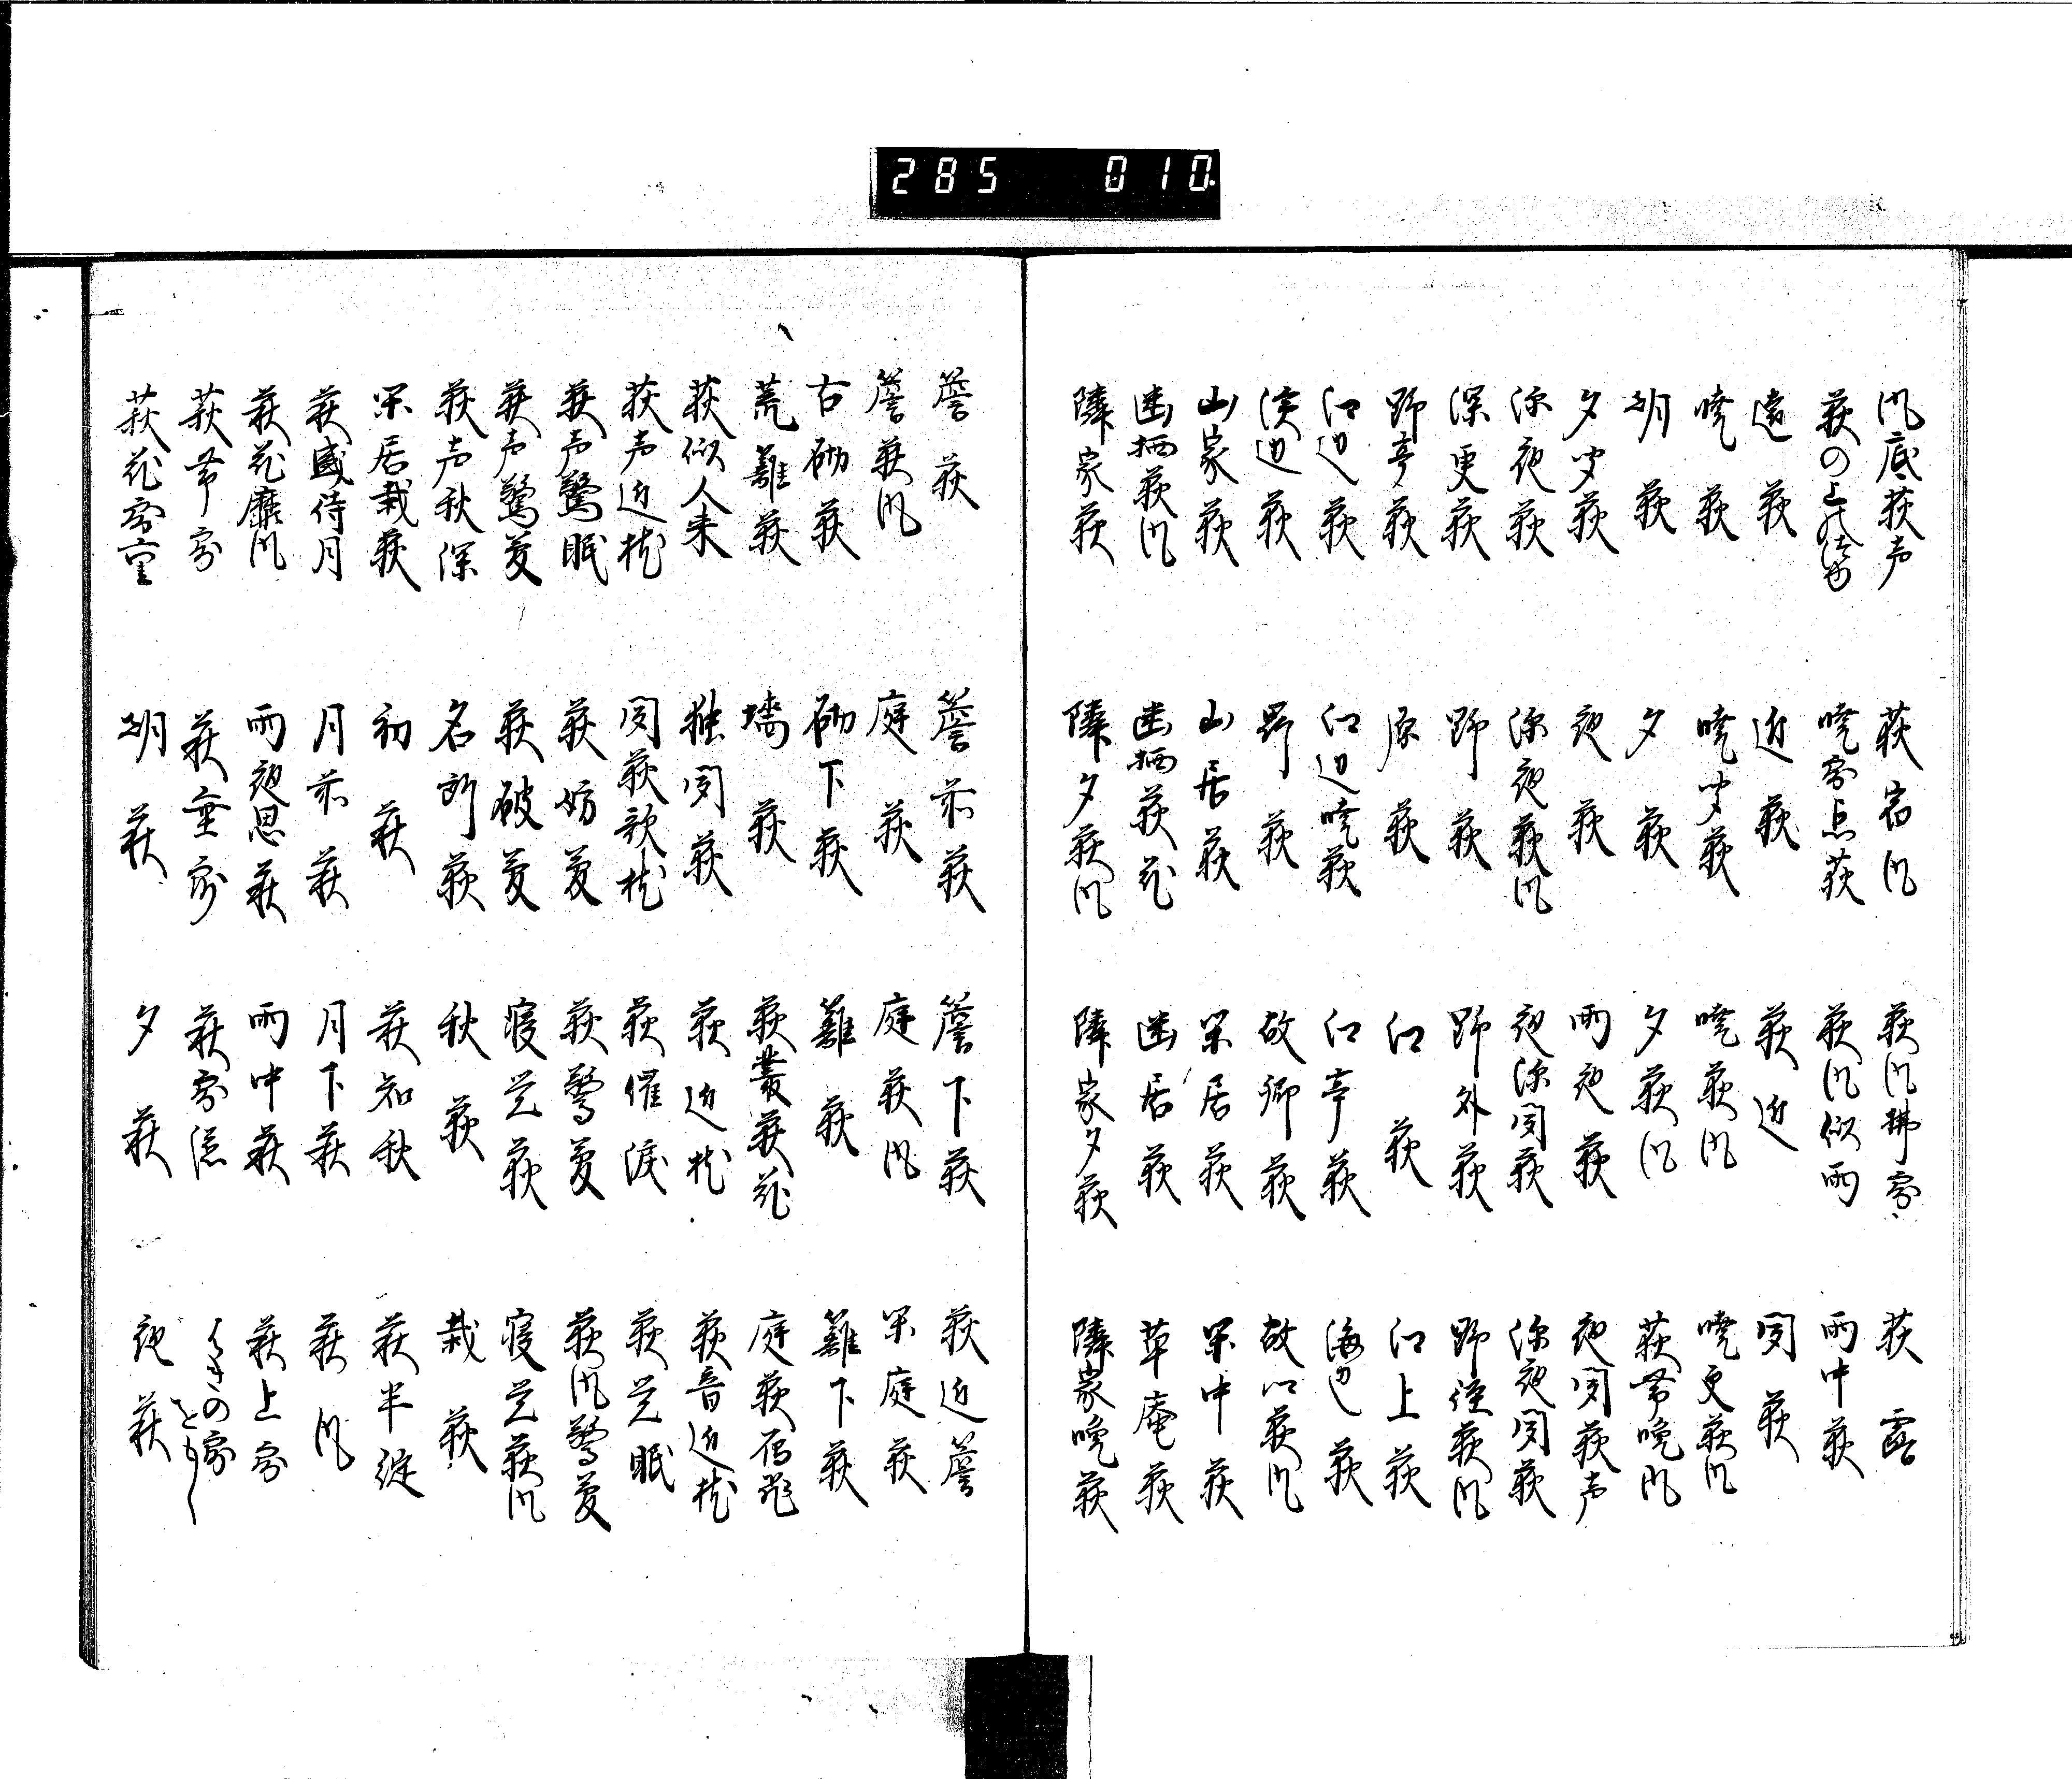 風底荻声　荻宿風　荻風拂露　荻露
荻の上の　暁露点荻　荻風似雨　雨中荻
遠荻　近荻　荻近　聞荻
暁荻　暁聞荻　暁荻風　暁更荻風
朝荻　夕荻　夕荻風　荻帯晩風
夕聞荻　夜荻　雨夜荻　夜聞荻声
深夜荻　深夜荻風　夜深聞荻　深夜聞荻
深更荻　野荻　野外荻　野径荻風
野亭荻　原荻　江荻　江上荻
江辺荻　江辺暁荻　江亭荻　海辺荻
辺荻　荻　故郷荻　故郷荻風
山家荻　山居荻　閑居荻　閑中荻
幽栖荻風　幽栖荻花　幽居荻　草庵荻
隣家荻　隣夕荻風　隣家夕荻　隣家晩荻
簷荻　簷前荻　簷下荻　荻近簷
簷荻風　庭荻　庭荻風　閑庭荻
古砌荻　砌下荻　籬荻　籬下荻
荒籬荻　墻荻　荻叢荻花　庭荻
荻似人来　独聞荻　荻近枕　荻音近枕
荻声近枕　聞荻欹枕　荻催涙　荻覚眠
荻声驚眠　荻妨夢　荻驚夢　荻風驚夢
荻声驚夢　荻破夢　寝覚荻　寝覚荻風
荻声秋深　名所荻　秋荻　栽荻
閑居栽荻　初萩　萩知秋　萩半綻
萩盛待月　月前萩　月下萩　萩風
萩花靡風　雨夜思萩　雨中萩　萩上露
萩帯露　萩垂露　萩露滋　はきの露
萩花露重　朝萩　夕萩　夜萩
285　010